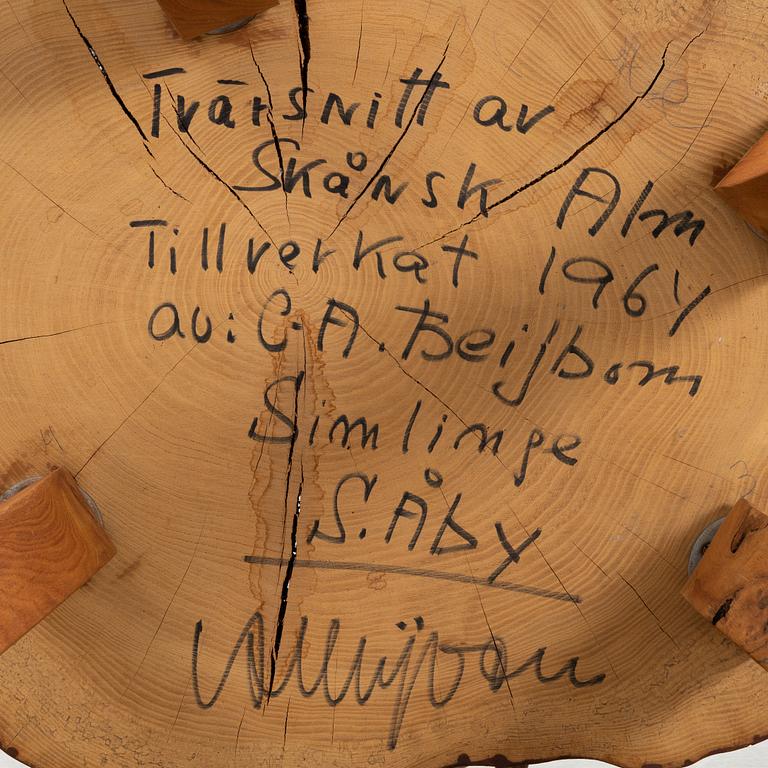 Tvärsnitt av
Skånsk Alm
Tillverkat 1964
av: C-A. Beijbom
Simlinge
S. Åby